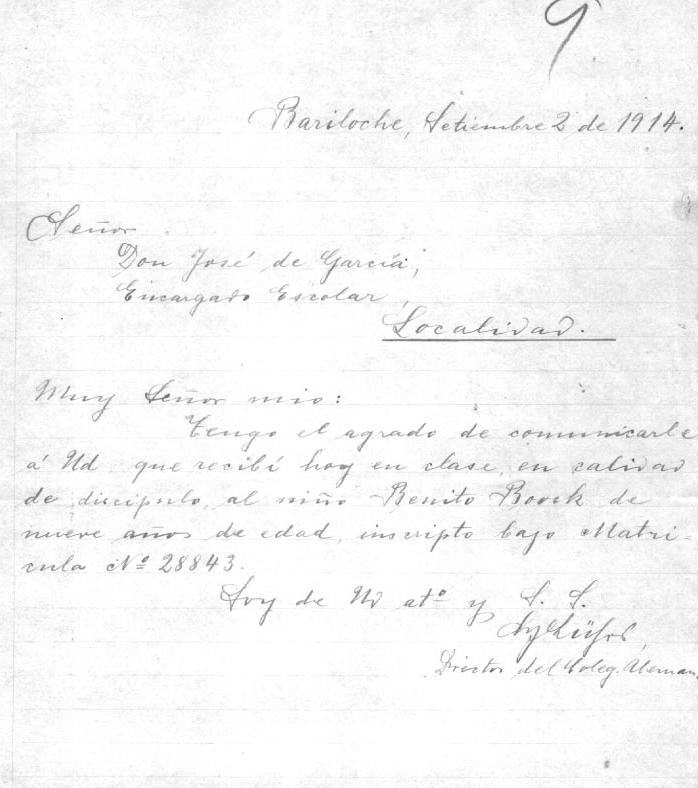 9
Bariloche, Setiembre 2 de 1914.
Señor
Don José de García,
Encargado Escolar,
Localidad.
Muy Señor mio:
Tengo el agrado de comunicarle
á Ud. que recibí hoy en clase, en calidad
de discípulo, al niño Benito Boock de
nueve años de edad, inscripto bajo Matri-
cula Nº 28843.
Soy de Ud atº y S. S.
Director del Coleg. Aleman.